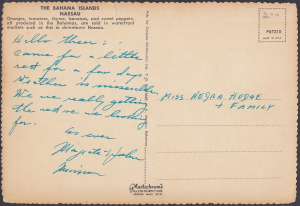 THE BAHAMA ISLANDS
NASSAU
Oranges, tomatoes, thyme, bananas, and sweet peppers,
all produced in the Bahamas, are sold in waterfront
markets such as this in downtown Nassau.
Hello there:
Came for a little
rest for a few days.
Weather is miserable
We are really getting
the rest we are looking
for.
As ever
John
P67218
MISS HEDRA HEDGE
+ FAMILY
Plastichrome